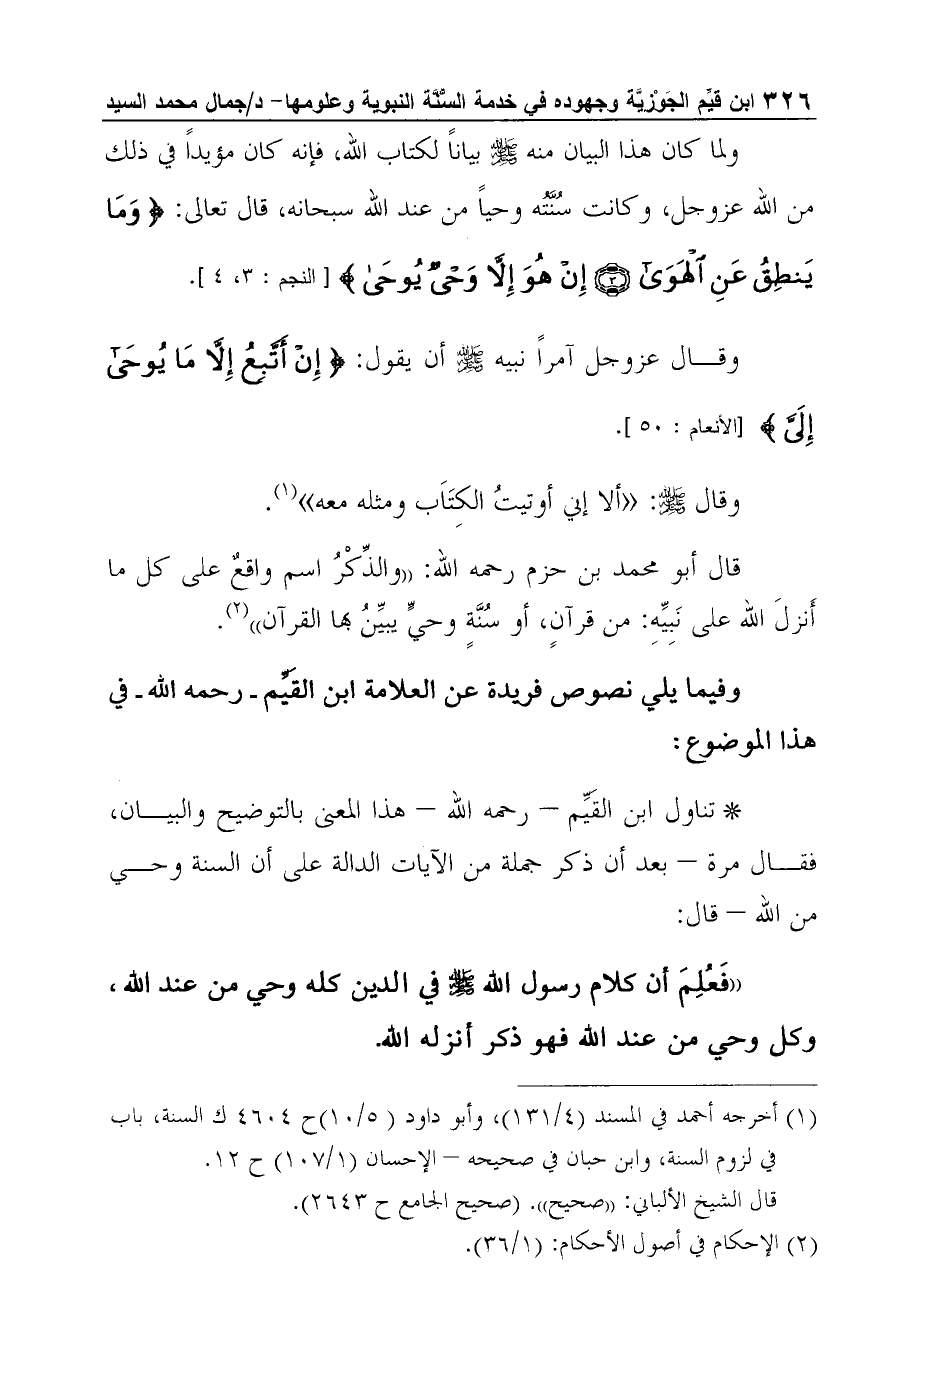 ٣٢٦ ابن قيِّم الجَوْزِيَّة وجهوده في خدمة السنَّة النبوية وعلومها- د/جمال محمد السيد
ولما كان هذا البيان منه ﷺ بياناً لكتاب الله، فإنه كان مؤيداً في ذلك
من الله عزوجل، وكانت سُنَّتُه وحياً من عند الله سبحانه، قال تعالى: ﴿ وَمَا
يَنطِقُ عَنِ ٱلْهَوَىٰٓ ۝٣ إِنْ هُوَ إِلَّا وَحْىٌ يُوحَىٰ ﴾ [ النجم : ٣، ٤ ].
وقـــال عزوجل آمراً نبيه ﷺ أن يقول: ﴿ إِنْ أَتَّبِعُ إِلَّا مَا يُوحَىٰٓ
إِلَىَّ ﴾ [الأنعام : ٥٠ ].
وقال ﷺ: «ألا إني أوتيتُ الكِتَاب ومثله معه»(١).
قال أبو محمد بن حزم رحمه الله: «والذِّكْرُ اسم واقعٌ على كل ما
أَنزلَ الله على نَبِيِّهِ: من قرآنٍ، أو سُنَّةٍ وحيٍّ يبيِّنُ بها القرآن»(٢).
وفيما يلي نصوص فريدة عن العلامة ابن القيِّم ـ رحمه الله ـ في
هذا الموضوع:
* تناول ابن القيِّم – رحمه الله – هذا المعنى بالتوضيح والبيـــان،
فقـــال مرة – بعد أن ذكر جملة من الآيات الدالة على أن السنة وحـــي
من الله – قال:
«فَعُلِمَ أن كلام رسول الله ﷺ في الدين كله وحي من عند الله ،
وكل وحي من عند الله فهو ذكر أنزله الله.
(١) أخرجه أحمد في المسند (١٣١/٤)، وأبو داود ( ١٠/٥)ح ٤٦٠٤ ك السنة، باب
في لزوم السنة، وابن حبان في صحيحه – الإحسان (١٠٧/١) ح ١٢.
قال الشيخ الألباني: «صحيح». (صحيح الجامع ح ٢٦٤٣).
(٢) الإحكام في أصول الأحكام: (٣٦/١).